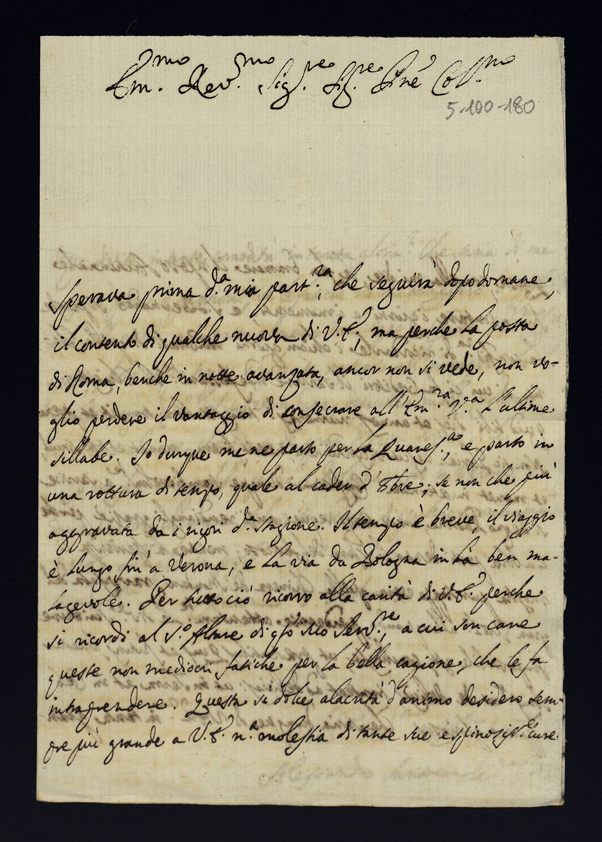 Em.mo Rev.mo Sig.re Sig.re P.ne Coll.mo
5-100-180
Sperava prima d.a mia part.za, che seguirà dopo domane,
il contento di qualche nuova di V.E., ma perche la posta
di Roma, benche in notte avanzata, ancor non si vede, non vo-
glio perdere il vantaggio di consecrare all'Em.za V.a l'ultime
sillabe. Io dunque me ne parto per la Quares.a, e parto in
una rottura di tempo, quale al cader d'8bre, se non che più
aggravata da i rigori d.a stagione. Il tempo è breve, il viaggio
è lungo fin'a Verona, e la via da Bologna in là ben ma-
lagevole. Per tutto ciò ricorro alla carità di V.E. perche
si ricordi al S.o Altare di q.sto suo Serv.re, a cui son care
queste non mediocri fatiche per la bella cagione, che le fa
intraprendere. Questa sì dolce alacrità d'animo desidero sem-
pre più grande a V.E. n.a molestia di tante sue e spinosiss.e cure.